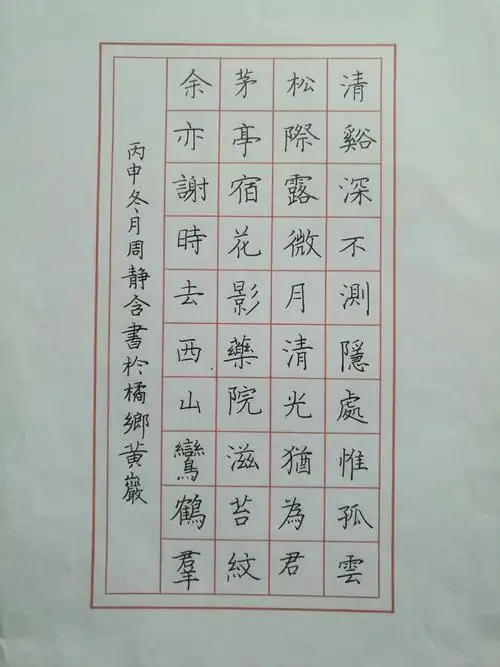 清谿深不測隱處惟孤雲
松際露微月清光猶為君
茅亭宿花影藥院滋苔紋
余亦謝時去西山鸞鶴羣
丙申冬月周靜含書於橘鄉黃巖